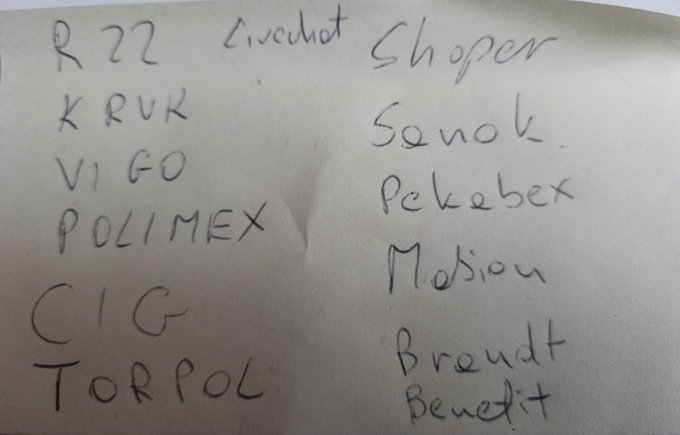 R 22
KRUK
VIGO
POLIMEX
CIG
TORPOL
Livechat
Shoper
Sanok
Pekabex
Brandt
Benefit